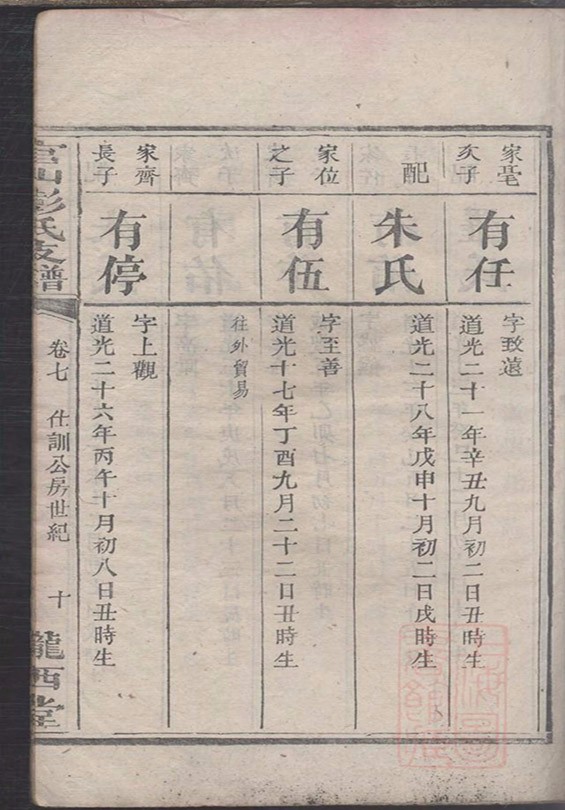 家毫
次子
有任
字致遠
道光二十一年辛丑九月初二日丑時生
配
朱氏
道光二十八年戊申十月初二日戌時生
家位
之子
有伍
字至善
道光十七年丁酉九月二十二日丑時生
往外貿易
家齊
長子
有停
字上觀
道光二十六年丙午十月初八日丑時生
彭氏支譜
卷七
仕訓公房世紀
十
隴西堂